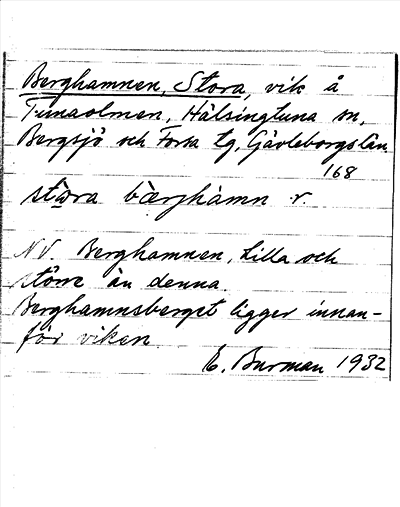 Berghamnen, Stora, vik å
Tunaolmen, Hälsingtuna sn,
Bergsjö och Forsa tg, Gävleborgs län.
168
stɷra bærghamn r.
NV. Berghamnen, Lilla och
större än denna.
Berghamnsberget ligger innan-
för viken.
E. Burman 1932